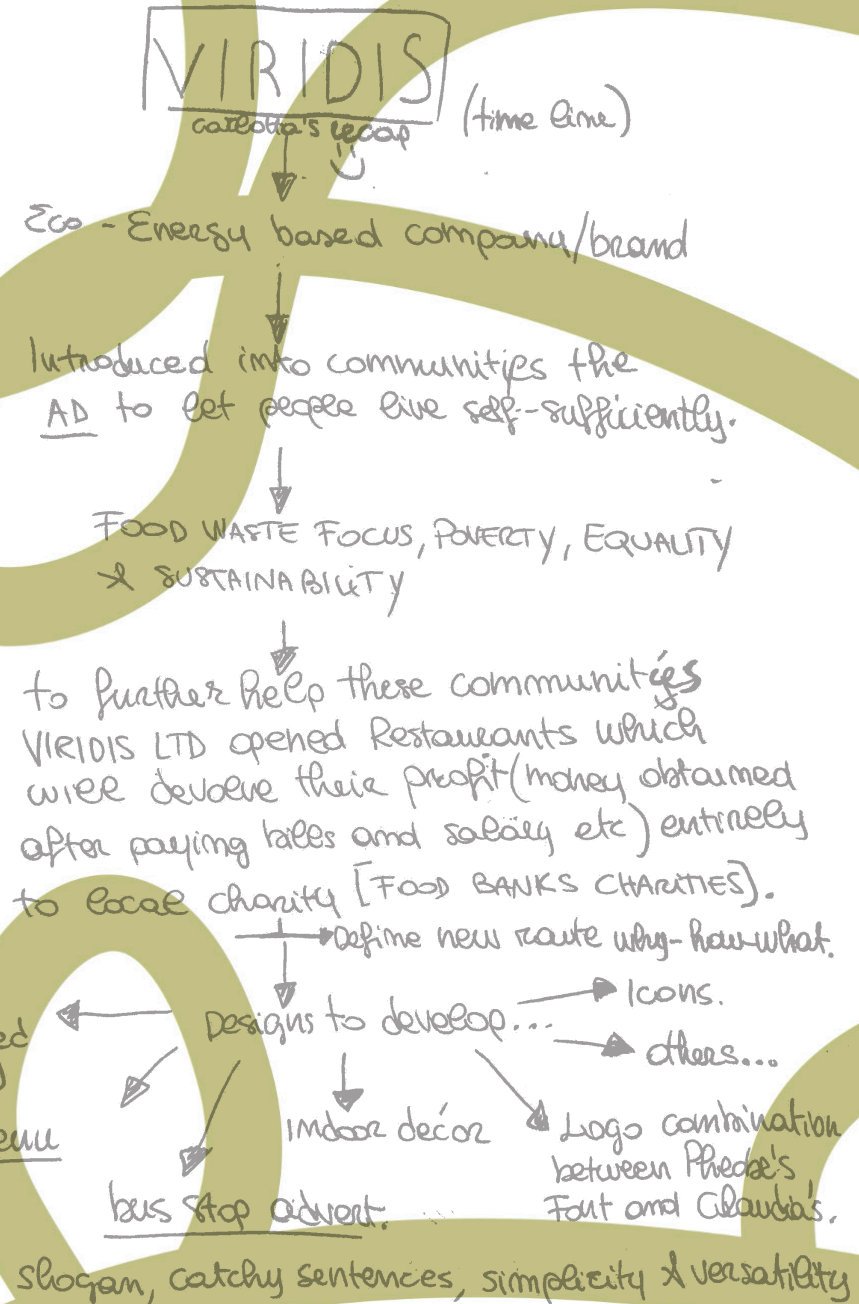 VIRIDIS
carlotta's recap (time line)
Eco - Energy based company/brand
Introduced into communities the
AD to let people live self-sufficiently.
FOOD WASTE FOCUS, POVERTY, EQUALITY
& SUSTAINABILITY
to further help these communities
VIRIDIS LTD opened Restaurants which
will devolve their profit (money obtained
after paying bills and salary etc) entirely
to local charity [FOOD BANKS CHARITIES].
Define new route why-how-what.
Icons.
Designs to develop...
others...
indoor decór
Logo combination
between Phedse's
Font and Claudia's.
bus stop advert.
slogan, catchy sentences, simplicity & versatility